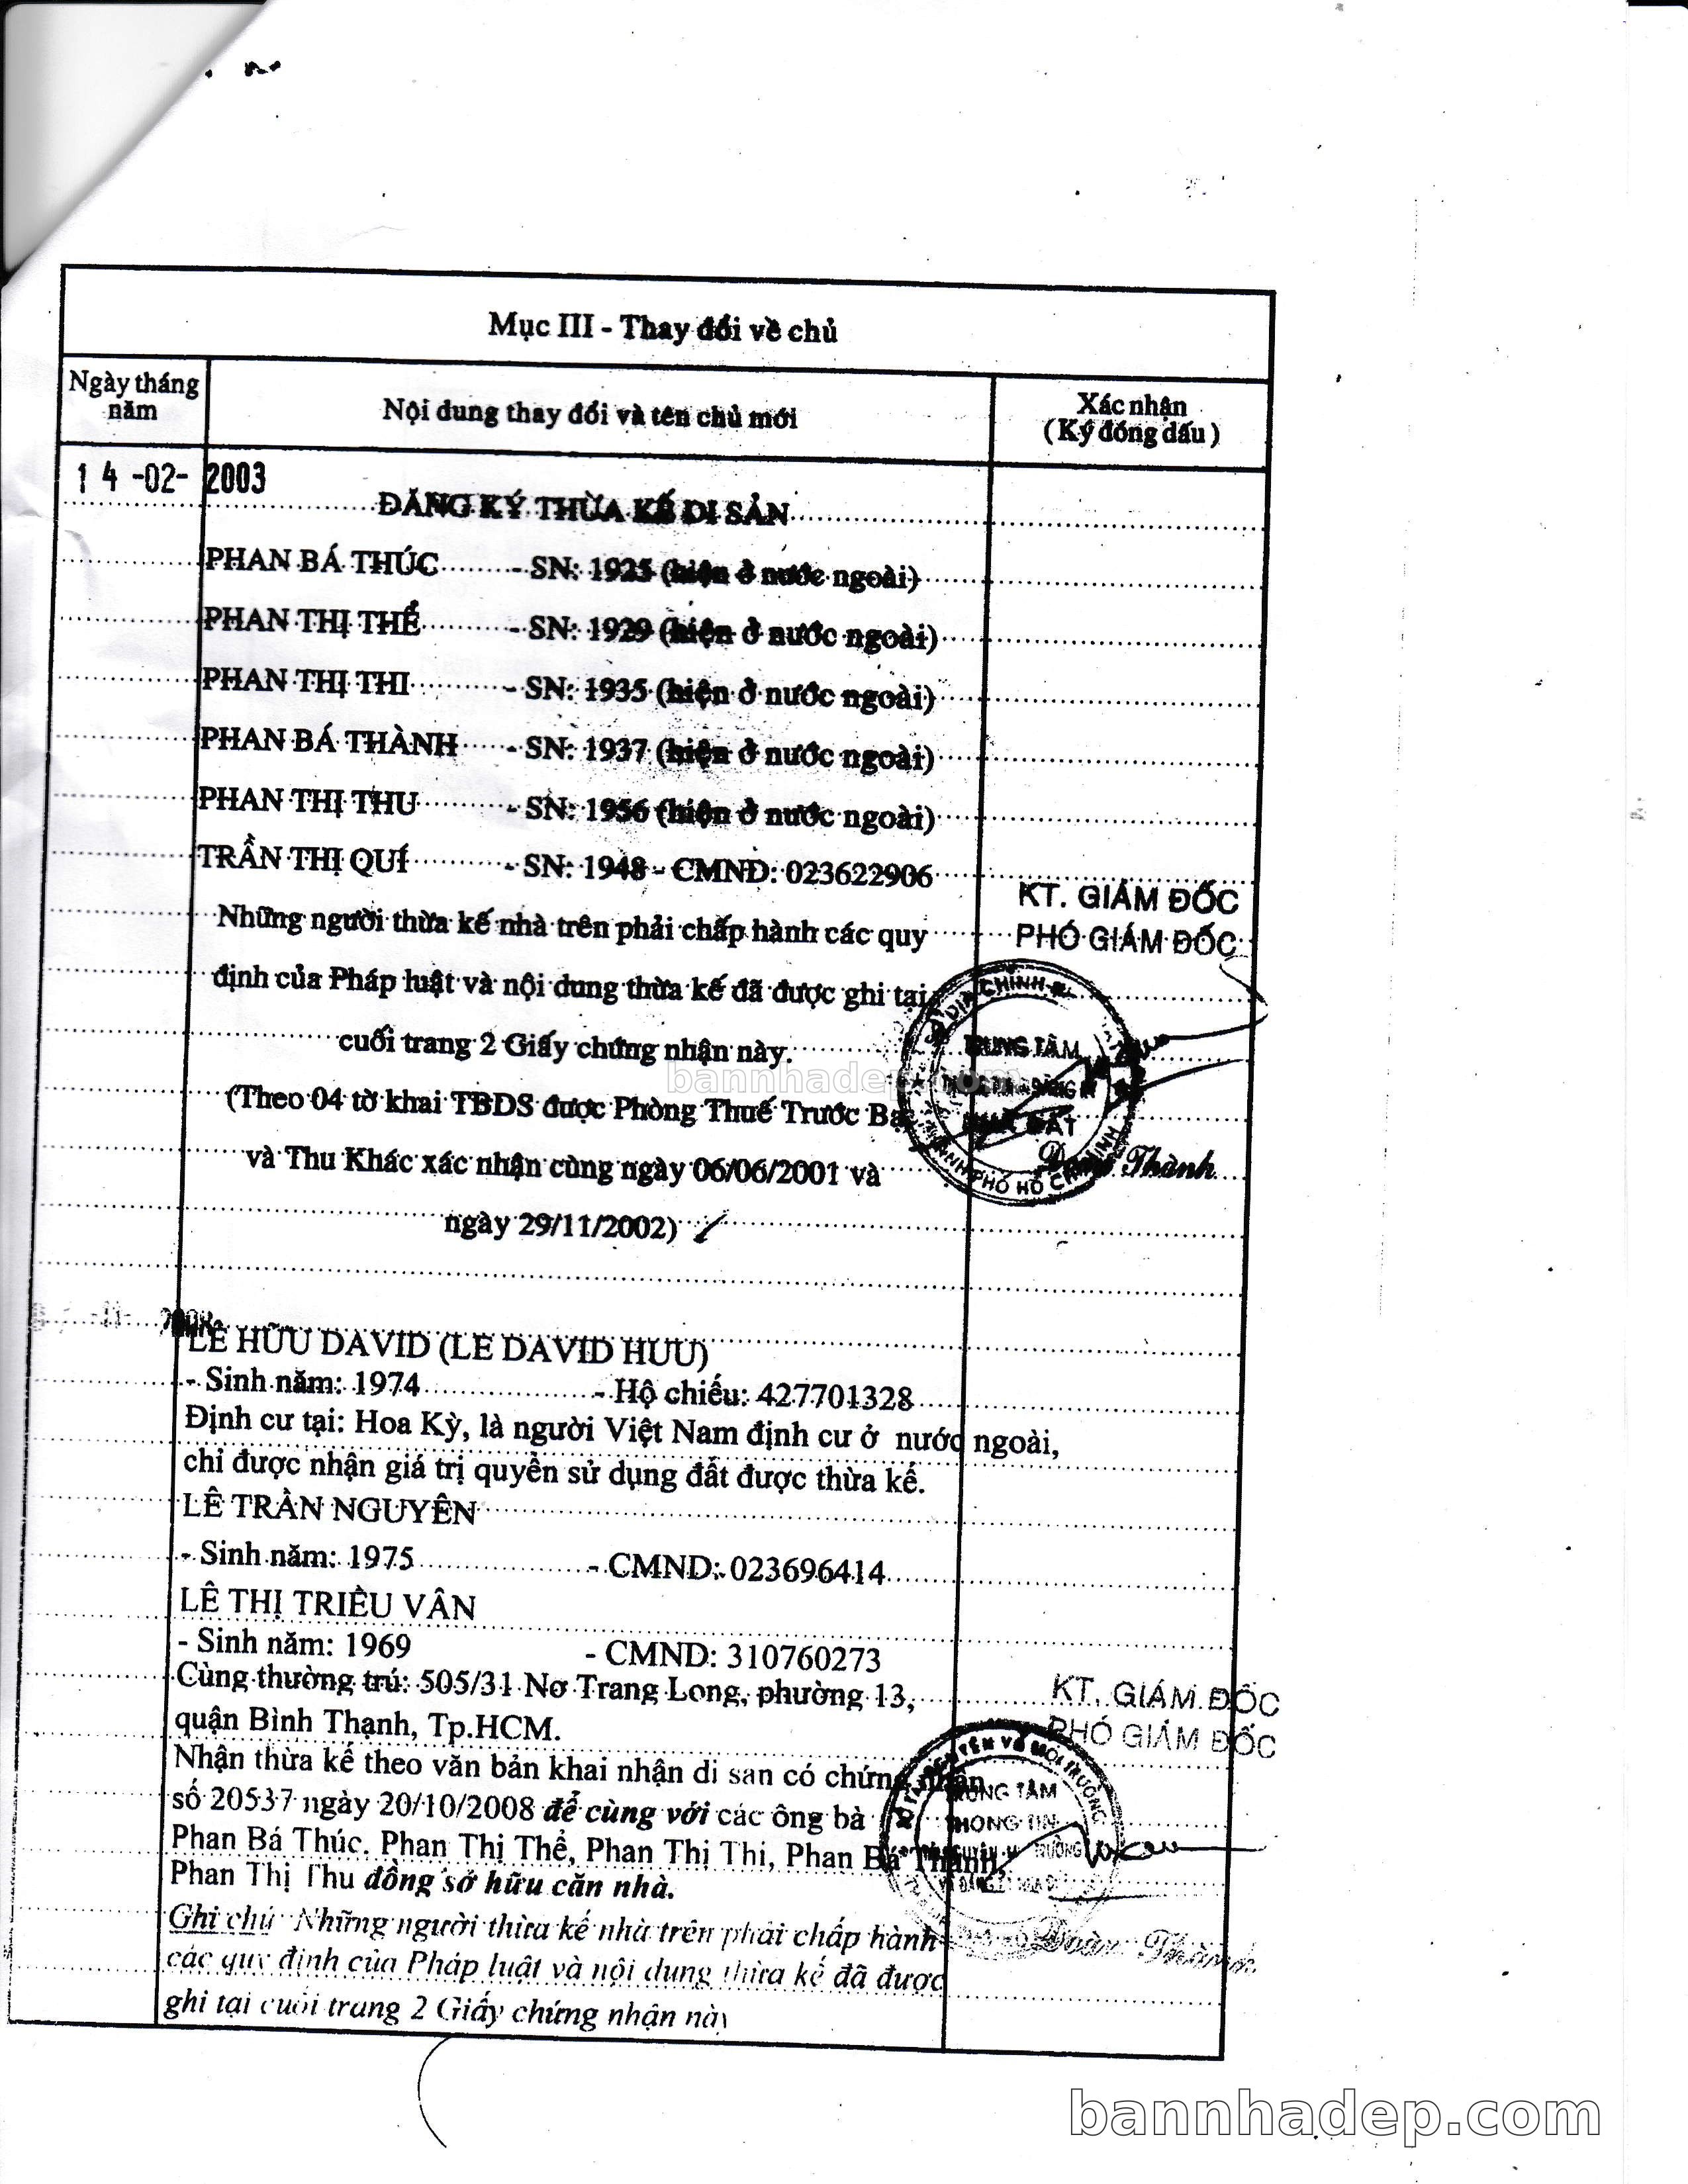 Mục III - Thay đổi về chủ
Ngày tháng năm
Nội dung thay đổi và tên chủ mới
Xác nhận
(Ký đóng dấu)
14-02-2003
ĐĂNG KÝ THỪA KẾ DI SẢN
PHAN BÁ THÚC - SN: 1925 (hiện ở nước ngoài)
PHAN THỊ THỂ - SN: 1929 (hiện ở nước ngoài)
PHAN THỊ THI - SN: 1935 (hiện ở nước ngoài)
PHAN BÁ THÀNH - SN: 1937 (hiện ở nước ngoài)
PHAN THỊ THU - SN: 1956 (hiện ở nước ngoài)
TRẦN THỊ QUÍ - SN: 1948 - CMND: 023622906
KT. GIÁM ĐỐC
Những người thừa kế nhà trên phải chấp hành các quy
PHÓ GIÁM ĐỐC
định của Pháp luật và nội dung thừa kế đã được ghi tại
cuối trang 2 Giấy chứng nhận này.
(Theo 04 tờ khai TBDS được Phòng Thuế Trước Bạ
và Thu Khác xác nhận cùng ngày 06/06/2001 và
ngày 29/11/2002)
ĐỊA CHÍNH
TRUNG TÂM
NHÀ ĐẤT
THÀNH PHỐ HỒ CHÍ MINH
Thành
bannhadep.com
2008
LÊ HỮU DAVID (LE DAVID HUU)
- Sinh năm: 1974 - Hộ chiếu: 427701328
Định cư tại: Hoa Kỳ, là người Việt Nam định cư ở nước ngoài,
chỉ được nhận giá trị quyền sử dụng đất được thừa kế.
LÊ TRẦN NGUYÊN
- Sinh năm: 1975 - CMND: 023696414
LÊ THỊ TRIỀU VÂN
- Sinh năm: 1969 - CMND: 310760273
Cùng thường trú: 505/31 Nơ Trang Long, phường 13,
quận Bình Thạnh, Tp.HCM.
KT. GIÁM ĐỐC
PHÓ GIÁM ĐỐC
Nhận thừa kế theo văn bản khai nhận di san có chứng nhận
số 20537 ngày 20/10/2008 để cùng với các ông bà
Phan Bá Thúc, Phan Thị Thể, Phan Thị Thi, Phan Bá Thành,
Phan Thị Thu đồng sở hữu căn nhà.
Ghi chú Những người thừa kế nhà trên phải chấp hành
các quy định của Pháp luật và nội dung thừa kế đã được
ghi tại cuối trang 2 Giấy chứng nhận này
NGUYÊN VÀ MÔI TRƯỜNG
TRUNG TÂM
THÔNG TIN
Đoàn Thành
bannhadep.com